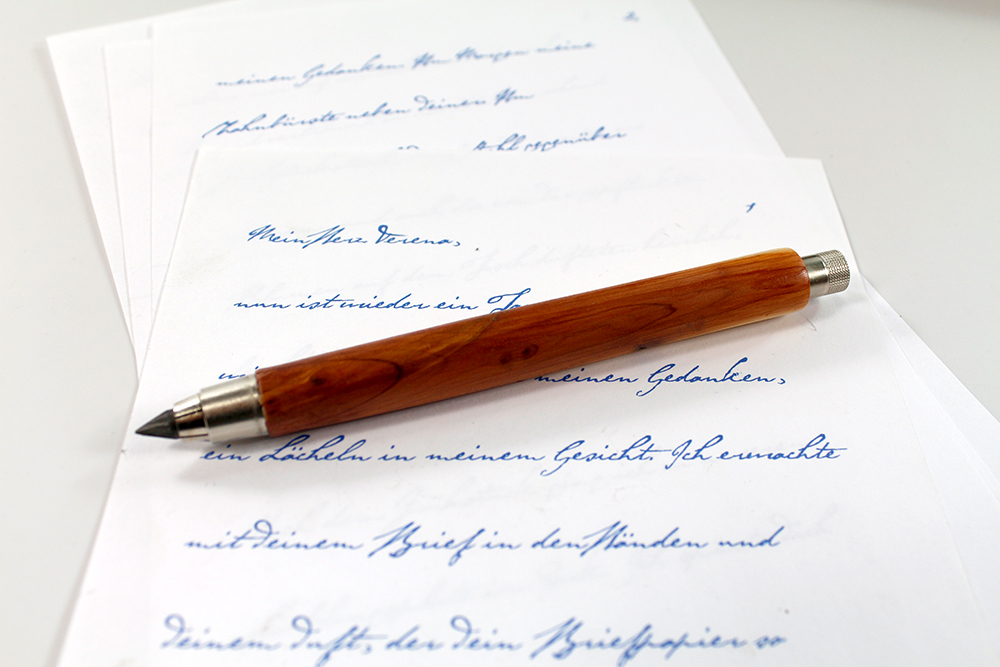 2
meinen Gedanken. Am Morgen meine
Zahnbürste neben deiner. Am
gegenüber
1
Mein Herz Verena,
nun ist wieder ein
meinen Gedanken,
ein Lächeln in meinem Gesicht. Ich erwachte
mit deinem Brief in den Händen und
deinem Duft, der dein Briefpapier so